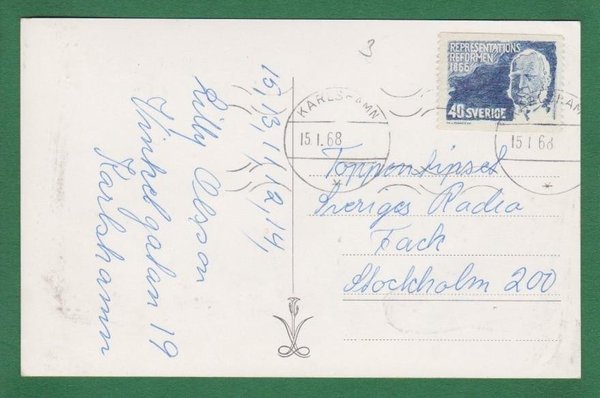 3
REPRESENTATIONS
REFORMEN
1866
40 SVERIGE
KARLSHAMN
15.1.68
15 1 68
Toppentipset
Sveriges Radio
Fack
Stockholm 200
15, 13, 11, 12, 14,
Lilly Olsson
Vinkelgatan 19
Karlshamn